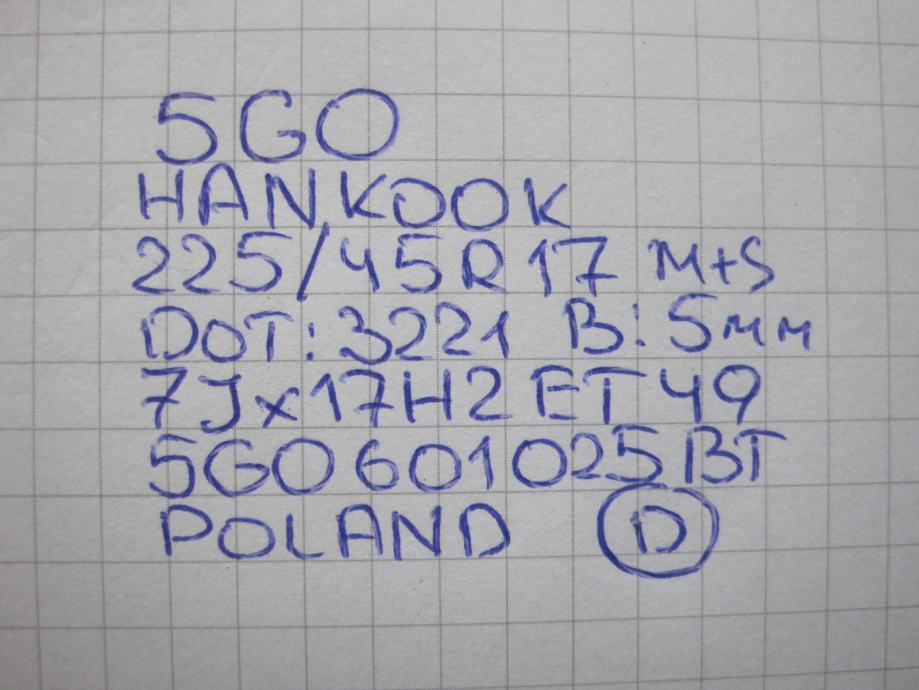 5GO
HANKOOK
225/45R17 M+S
DOT:3221 B:5мм
7Jx17H2 ET49
5GO601025BT
POLAND D